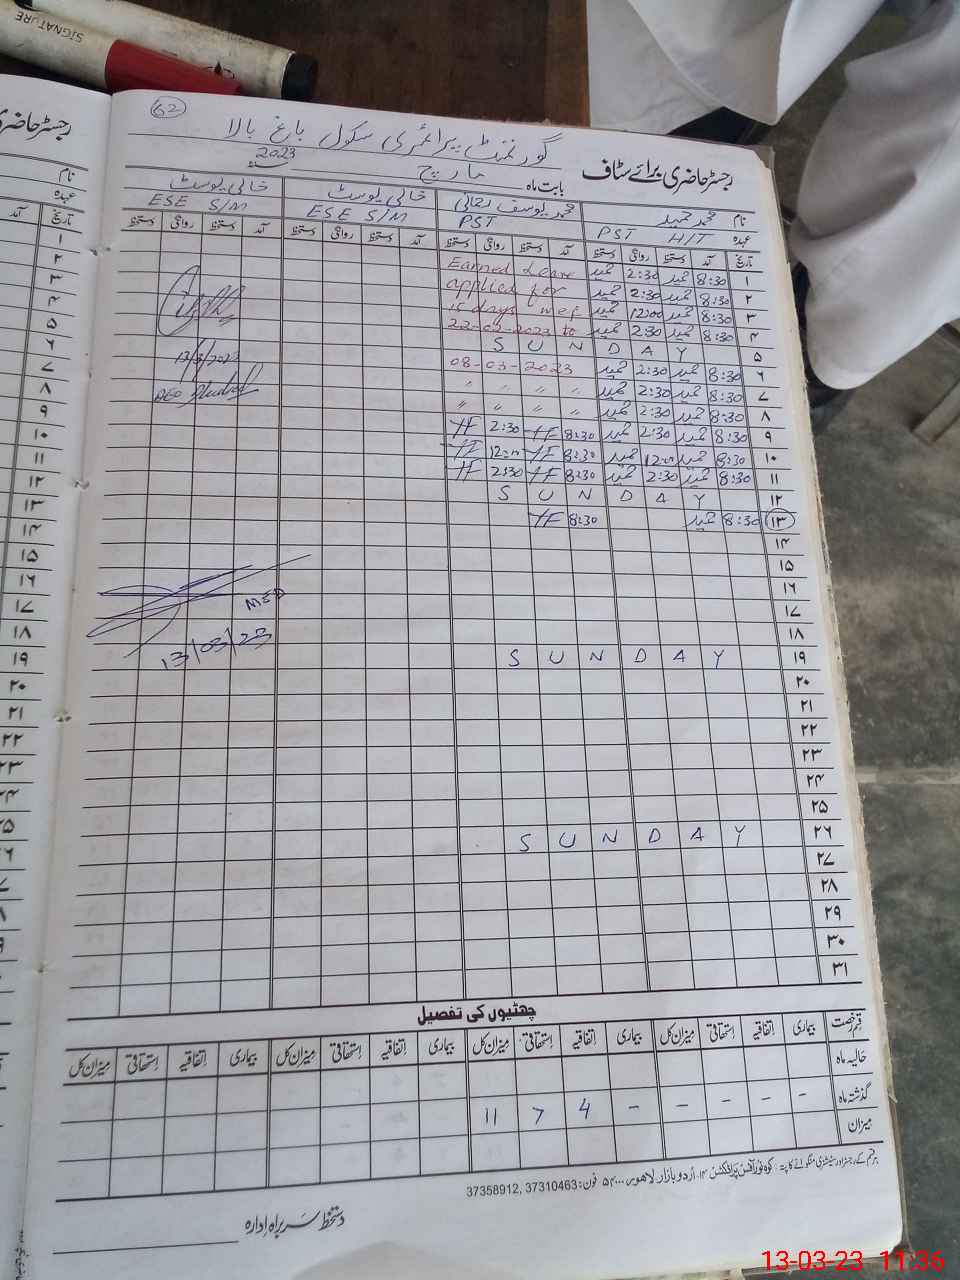 SIGNATURE
62
رجسٹر حاضری
گورنمنٹ پرائمری سکول باغ بالا
رجسٹر حاضری برائے سٹاف
بابت ماہ مارچ 2023
نام محمد حمید محمد یوسف خالی پوسٹ خالی پوسٹ
عہدہ PST H/T PST ESE S/M ESE S/M
تاریخ آمد دستخط روانگی دستخط آمد دستخط روانگی دستخط آمد دستخط روانگی دستخط آمد دستخط روانگی دستخط
۱ 8:30 حمید 2:30 حمید Earned Leave
۲ 8:30 حمید 2:30 حمید applied for
۳ 8:30 حمید 12:00 حمید 15 days wef
۴ 8:30 حمید 2:30 حمید 22-02-2023 to
۵ S U N D A Y
۶ 8:30 حمید 2:30 حمید 08-03-2023
۷ 8:30 حمید 2:30 حمید " " " "
۸ 8:30 حمید 2:30 حمید " " " "
۹ 8:30 حمید 2:30 حمید 8:30 YF 2:30 YF
۱۰ 8:30 حمید 12:00 حمید 8:30 YF 12:00 YF
۱۱ 8:30 حمید 2:30 حمید 8:30 YF 2:30 YF
۱۲ S U N D A Y
۱۳ 8:30 حمید 8:30 YF
۱۴
۱۵
۱۶
۱۷
۱۸
۱۹ S U N D A Y
۲۰
۲۱
۲۲
۲۳
۲۴
۲۵
۲۶ S U N D A Y
۲۷
۲۸
۲۹
۳۰
۳۱
13/3/2023
DEO
MED
13/03/23
چھٹیوں کی تفصیل
قسم رخصت بیماری اتفاقیہ استحقاقی میزان کل بیماری اتفاقیہ استحقاقی میزان کل بیماری اتفاقیہ استحقاقی میزان کل بیماری اتفاقیہ استحقاقی میزان کل
حالیہ ماہ
گذشتہ ماہ - - - - - 4 7 11
میزان
ہر قسم کے رجسٹر اور سٹیشنری منگوانے کا پتہ: کوہ نور آفسٹ پرنٹنگ ۱۴۔ اردو بازار لاہور ۵۴۰۰۰ فون: 37310463 ,37358912
دستخط سربراہ ادارہ
13-03-23 11:36